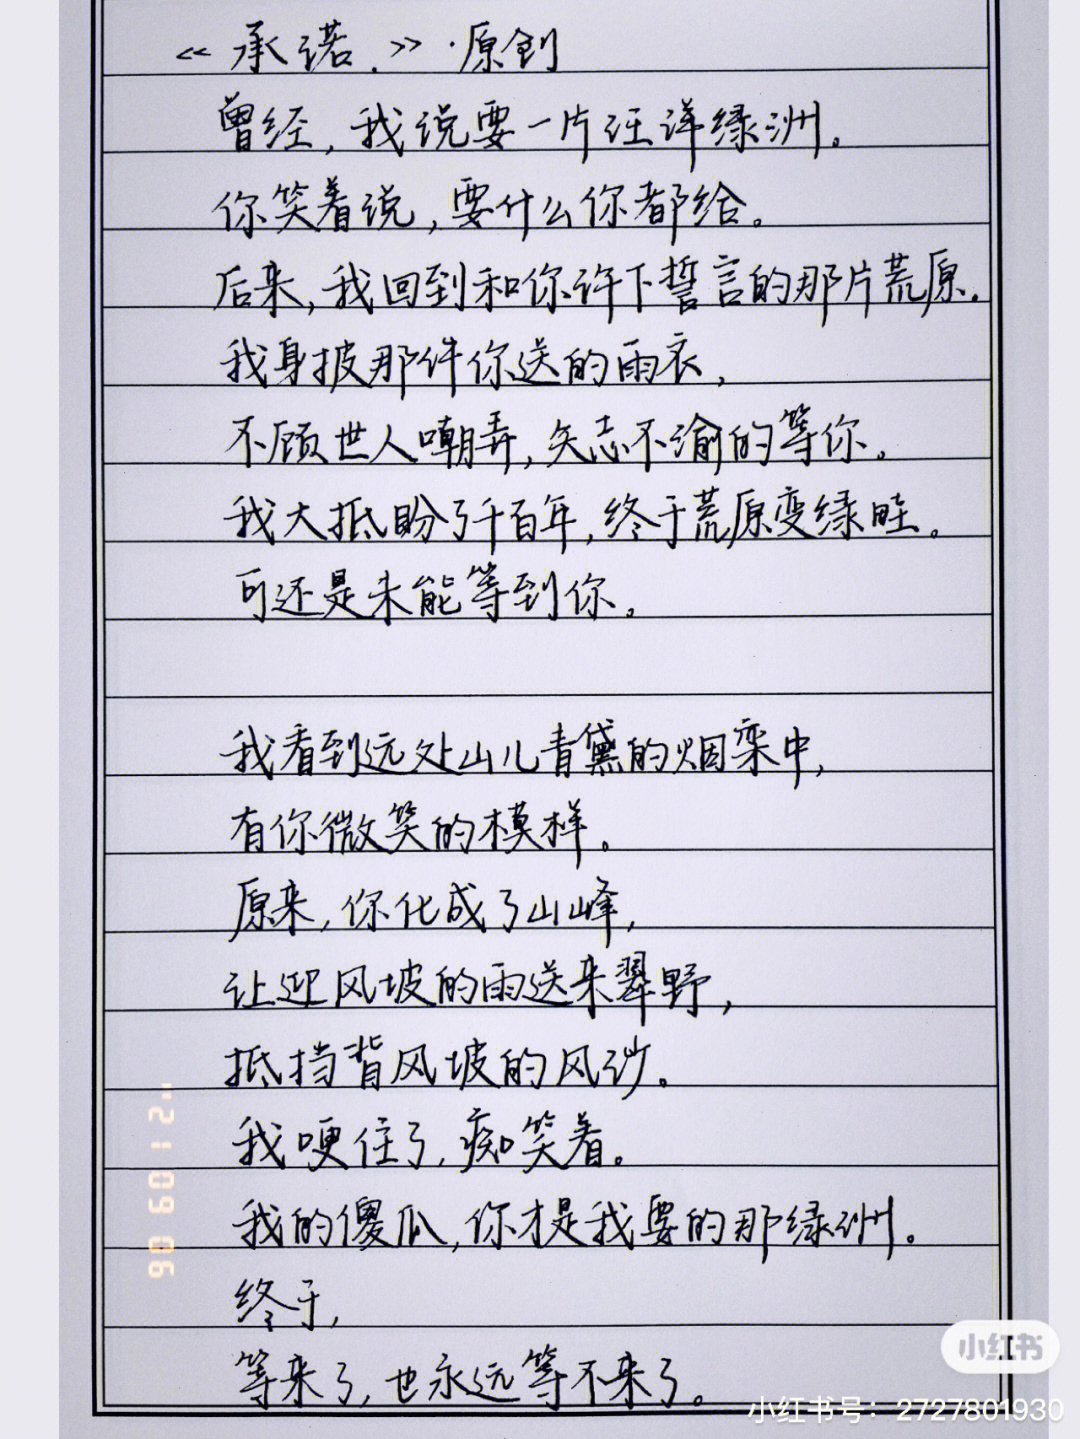 《承诺.》·原创
曾经,我说要一片汪洋绿洲。
你笑着说,要什么你都给。
后来,我回到和你许下誓言的那片荒原.
我身披那件你送的雨衣,
不顾世人嘲弄,矢志不渝的等你。
我大抵盼了千百年,终于荒原变绿畦。
可还是未能等到你。
我看到远处山儿青黛的烟栾中,
有你微笑的模样。
原来,你化成了山峰,
让迎风坡的雨送来翠野,
抵挡背风坡的风沙。
我哽住了,痴笑着。
我的傻瓜,你才是我要的那绿洲。
终于,
等来了,也永远等不来了。
'21 09 06
小红书
小红书号：2727801930